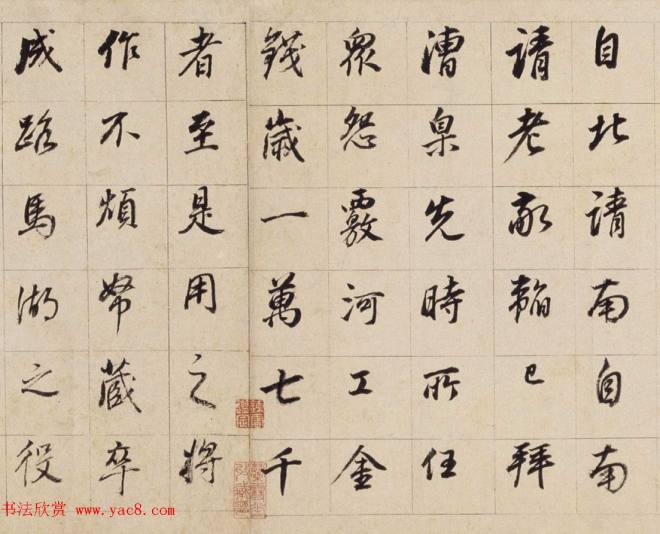 自北請南自南
請老已拜
漕臬先時所任
眾怨覈河工金
錢歲一萬七千
者至是用之將
作不煩帑藏卒
成路馬湖之役
书法欣赏 www.yac8.com